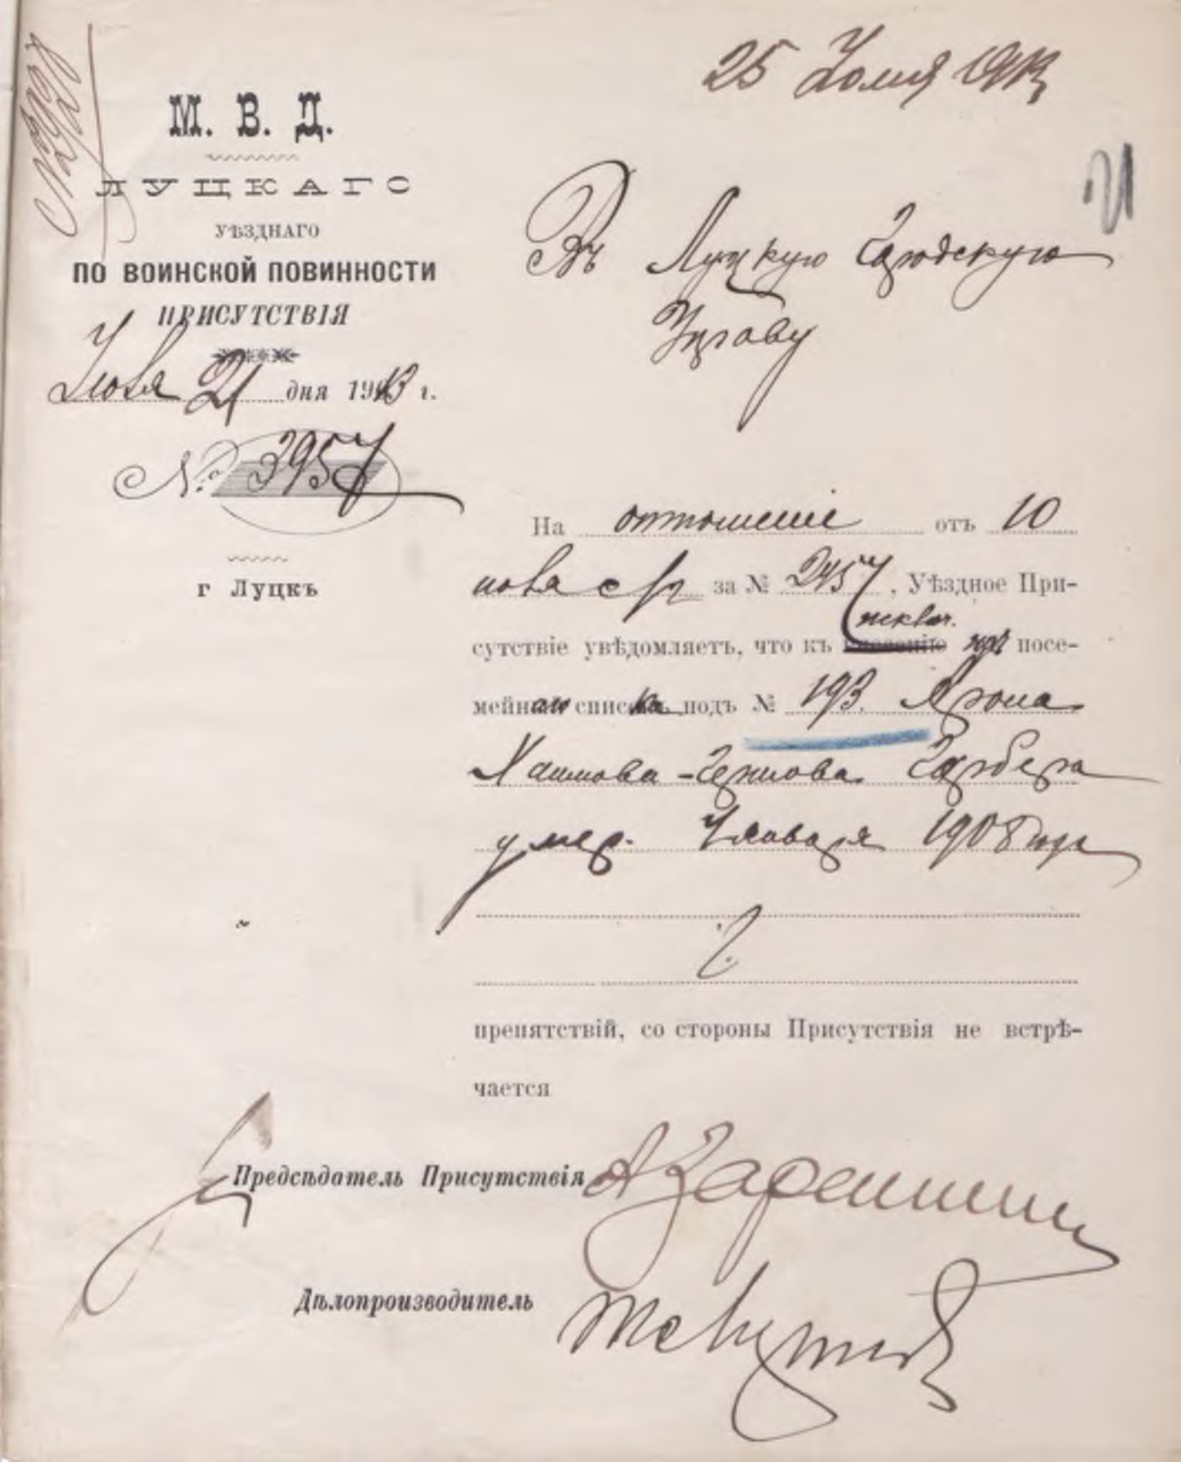 25 Іюля 1913
М. В. Д.
ЛУЦКАГО
УѢЗДНАГО
ПО ВОИНСКОЙ ПОВИННОСТИ
ПРИСУТСТВІЯ
21 дня 1913 г.
№ 3957
г Луцкъ
21
Въ Луцкую Городскую
Управу
На отношеніе отъ 10
с/г за № 2457, Уѣздное При-
исключ.
сутствіе увѣдомляетъ, что къ внесенію изъ посе-
мейнаго списка подъ № 193. Арона
Хаимова-Гершова Гарбера
умер. Января 1908 года
препятствій, со стороны Присутствія не встрѣ-
чается
Предсѣдатель Присутствія
Дѣлопроизводитель